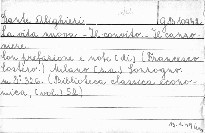 Dante Alighieri G.D. 10942
La vita nuova - Il convito - Il canzo-
niere.
Con prefazione e note (di) (Francesco
Costero.) Milano (s.a.) Sonzogno.
8° 326. (Biblioteca classica econo-
mica, (vol.) 52.)